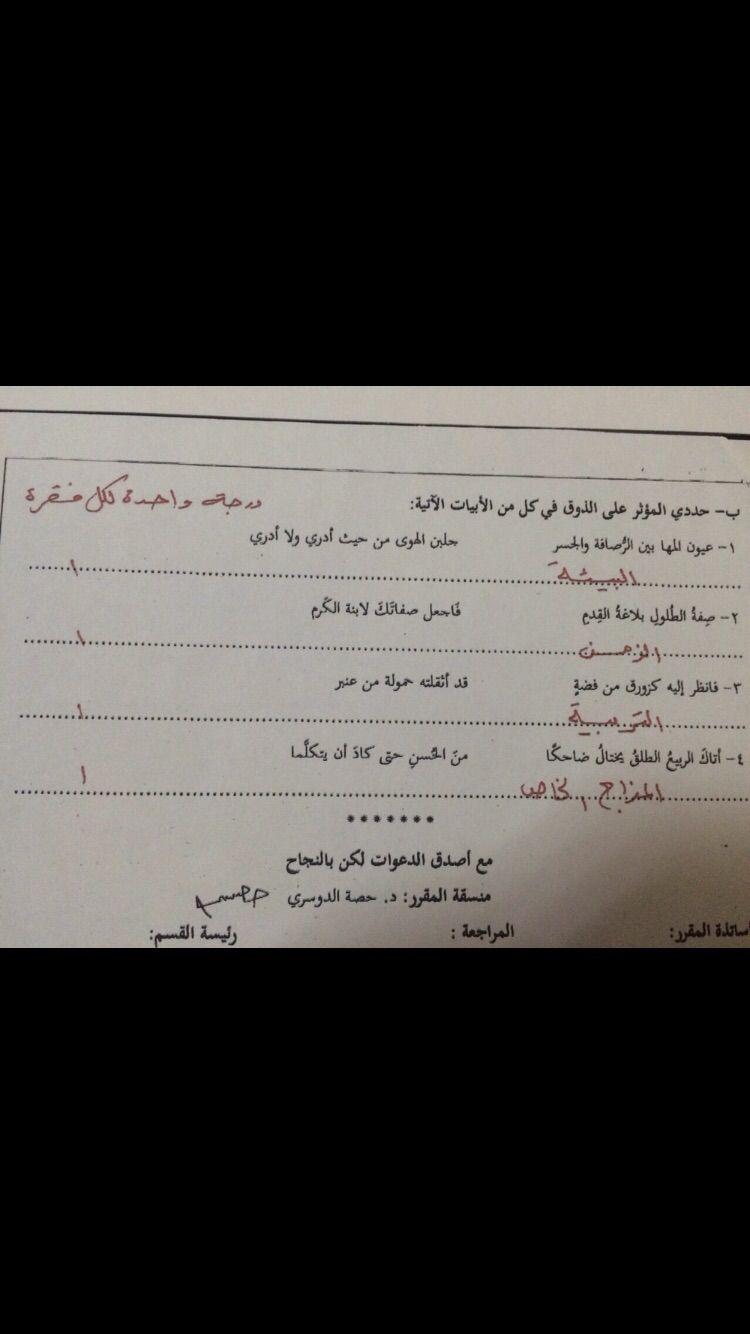 ب- حددي المؤثر على الذوق في كل من الأبيات الآتية: درجة واحدة لكل فقرة
١- عيون المها بين الرُّصافة والجسر جلبن الهوى من حيث أدري ولا أدري
البيئة ١
٢- صِفةُ الطُلولِ بلاغةُ القِدمِ فَاجعل صفاتَكَ لابنة الكَرم
١
٣- فانظر إليه كزورق من فضةٍ قد أثقلته حمولة من عنبر
التربية ١
٤- أتاكَ الربيعُ الطلقُ يختالُ ضاحكًا منَ الحُسنِ حتى كادَ أن يتكلَّما
المزاج الخاص ١
*******
مع أصدق الدعوات لكن بالنجاح
منسقة المقرر: د. حصة الدوسري
أساتذة المقرر: المراجعة : رئيسة القسم: